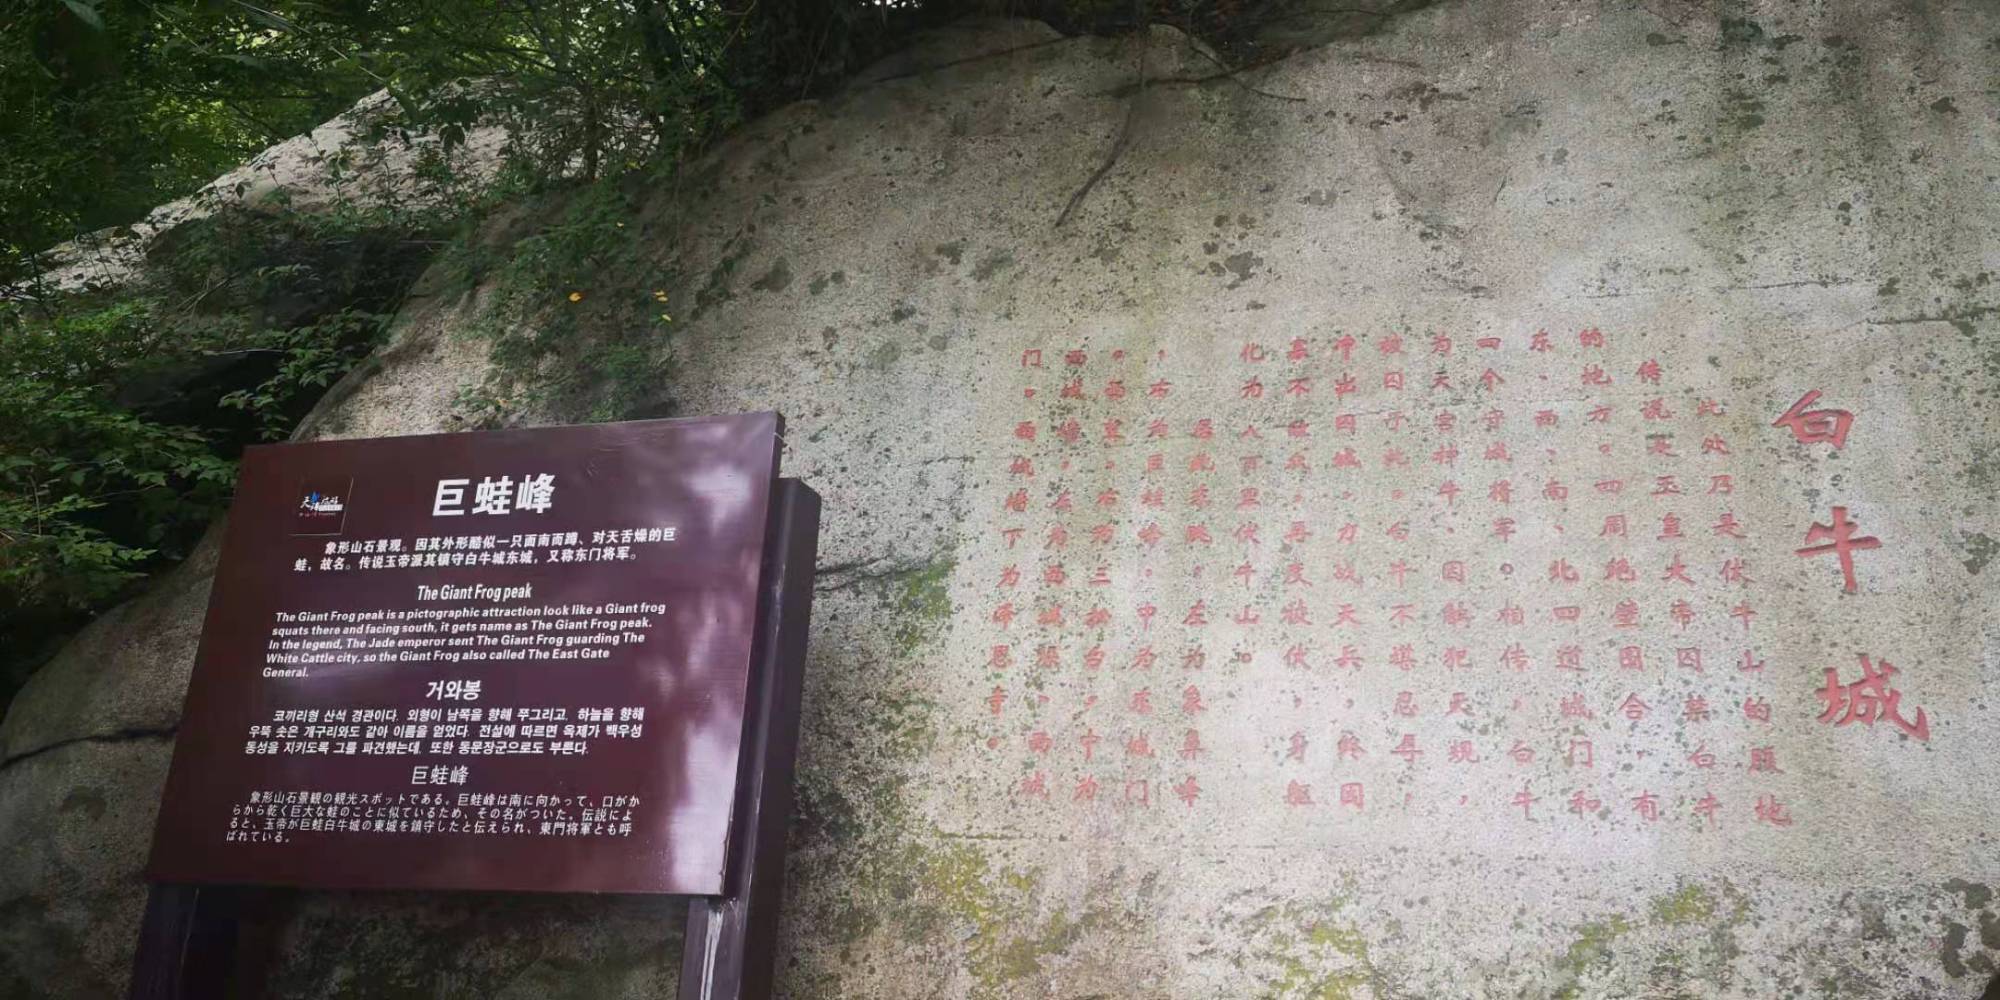 巨蛙峰
象形山石景观。因其外形酷似一只面南而蹲、对天舌燥的巨
蛙，故名。传说玉帝派其镇守白牛城东城，又称东门将军。
The Giant Frog peak
The Giant Frog peak is a pictographic attraction look like a Giant frog
squats there and facing south, it gets name as The Giant Frog peak.
In the legend, The Jade emperor sent The Giant Frog guarding The
White Cattle city, so the Giant Frog also called The East Gate
General.
거와봉
코끼리형 산석 경관이다. 외형이 남쪽을 향해 쭈그리고, 하늘을 향해
우뚝 솟은 개구리와도 같아 이름을 얻었다. 전설에 따르면 옥제가 백우성
동성을 지키도록 그를 파견했는데, 또한 동문장군으로도 부른다.
巨蛙峰
象形山石景観の観光スポットである。巨蛙峰は南に向かって、口がか
らから乾く巨大な蛙のことに似ているため、その名がついた。伝説によ
ると、玉帝が巨蛙白牛城の東城を鎮守したと伝えられ、東門将軍とも呼
ばれている。
白牛城
此处乃是伏牛山的腹地
传说是玉皇大帝囚禁白牛
的地方。四周绝壁围合，有
东、西、南、北四道城门和
四个守城将军。相传，白牛
为天宫神牛，因触犯天规，
被囚于此。白牛不堪忍辱，
冲出囚城，力战天兵，终因
寡不敌众，再度被伏，身躯
化为八百里伏牛山。
居城东眺，左为象鼻峰
，右为巨蛙峰。中为东城门
。西望，右为三
西城墙，左为西城，西城
门。西城墙下为恩寺。